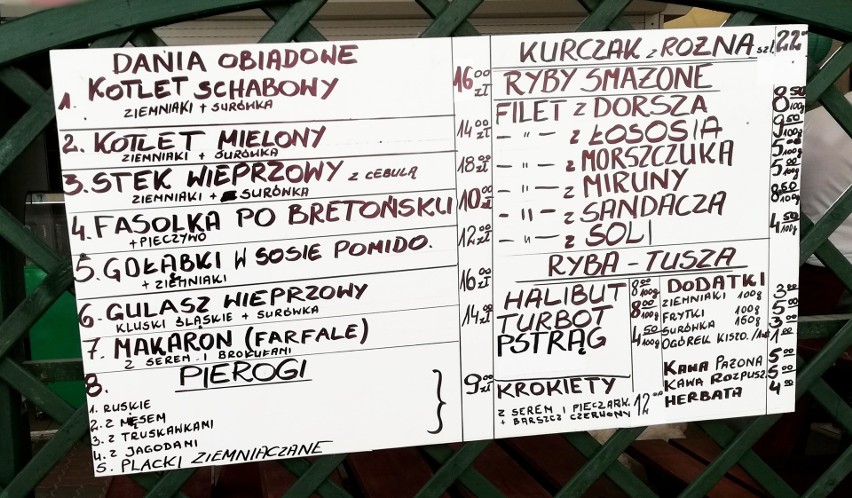 DANIA OBIADOWE
1. KOTLET SCHABOWY 16 00 zł
ZIEMNIAKI + SURÓWKA
2. KOTLET MIELONY 14 00 zł
ZIEMNIAKI + SURÓWKA
3. STEK WIEPRZOWY Z CEBULĄ 18 00 zł
ZIEMNIAKI + SURÓWKA
4. FASOLKA PO BRETOŃSKU 10 00 zł
+ PIECZYWO
5. GOŁĄBKI W SOSIE POMIDO. 12 00 zł
+ ZIEMNIAKI
6. GULASZ WIEPRZOWY 16 00 zł
KLUSKI ŚLĄSKIE + SURÓWKA
7. MAKARON (FARFALE) 14 00 zł
Z SEREM I BROKUŁAMI
8. PIEROGI 9 00 zł
1. RUSKIE
2. Z MĘSEM
3. Z TRUSKAWKAMI
4. Z JAGODAMI
5. PLACKI ZIEMNIACZANE
KURCZAK Z ROŻNA szt. 22 00
RYBY SMAŻONE
FILET Z DORSZA 8 50 100g
– " – Z ŁOSOSIA 9 50 100g
– " – Z MORSZCZUKA 5 00 100g
– " – Z MIRUNY 5 00 100g
– " – Z SANDACZA 8 50 100g
– " – Z SOLI 4 50 100g
RYBA – TUSZA
HALIBUT 8 00 100g
TURBOT 8 00 100g
PSTRĄG 4 50 100g
KROKIETY
Z SEREM I PIECZARK. 12 00
+ BARSZCZ CZERWONY
DODATKI
ZIEMNIAKI 100g 3 00
FRYTKI 100g 5 00
SURÓWKA 160g 3 00
OGÓREK KISZO. 1 00
KAWA PAŻONA 5 00
KAWA ROZPUSZ. 5 00
HERBATA 4 00